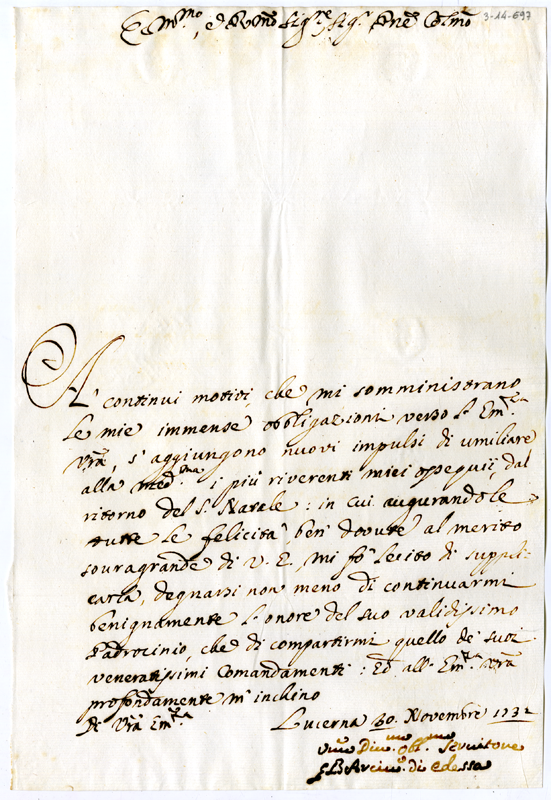 Em.mo, e R.mo Sig.re Sig.r P.ne Col.mo
3-14-697
A' continui motivi, che mi somministrano
le mie immense obbligazioni verso l'Em.za
Vr̃a, s'aggiungono nuovi impulsi di umiliare
alla med.ma i più riverenti miei ossequij, dal
ritorno del S. Natale: in cui augurandole
tutte le felicità, ben' dovute al merito
souragrande di V. E. mi fo' lecito di suppli-
carla, degnarsi non meno di continuarmi
benignamente l'onore del suo validissimo
Padrocinio, che di compartirmi quello de' suoi
veneratissimi Comandamenti: Ed all'Em.za Vr̃a
profondamente m'inchino
Di Vr̃a Em.za
Lucerna 30. Novembre 1732
Um.o Div.mo Obl.mo Servitore
GB Arciv.o di Edessa